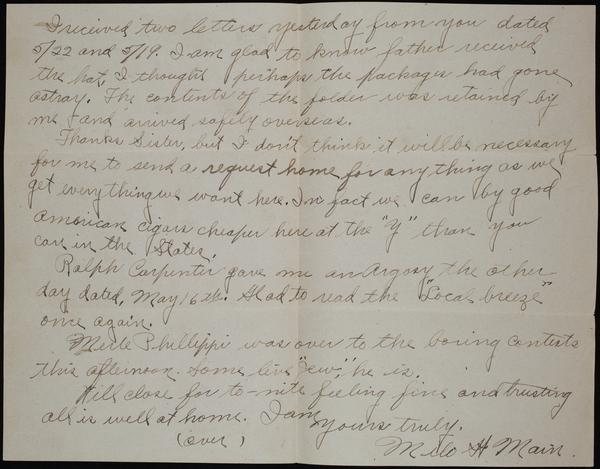 I received two letters yesterday from you dated
5/22 and 5/19. I am glad to know father received
the hat, I thought perhaps the packages had gone
astray. The contents of the folder was retained by
me and arrived safely overseas.
Thanks Sister, but I don't think it will be necessary
for me to send a request home for anything as we
get everything we want here. In fact we can by good
American cigars cheaper here at the "Y" than you
can in the States.
Ralph Carpenter gave me an Argosy the other
day dated, May 16th. Glad to read the "Local breeze"
once again.
Merle Phillippi was over to the boxing contests
this afternoon. Some live "Jew," he is.
Will close for to-nite feeling fine and trusting
all is well at home. I am
Yours truly.
(over) Milo H Main.